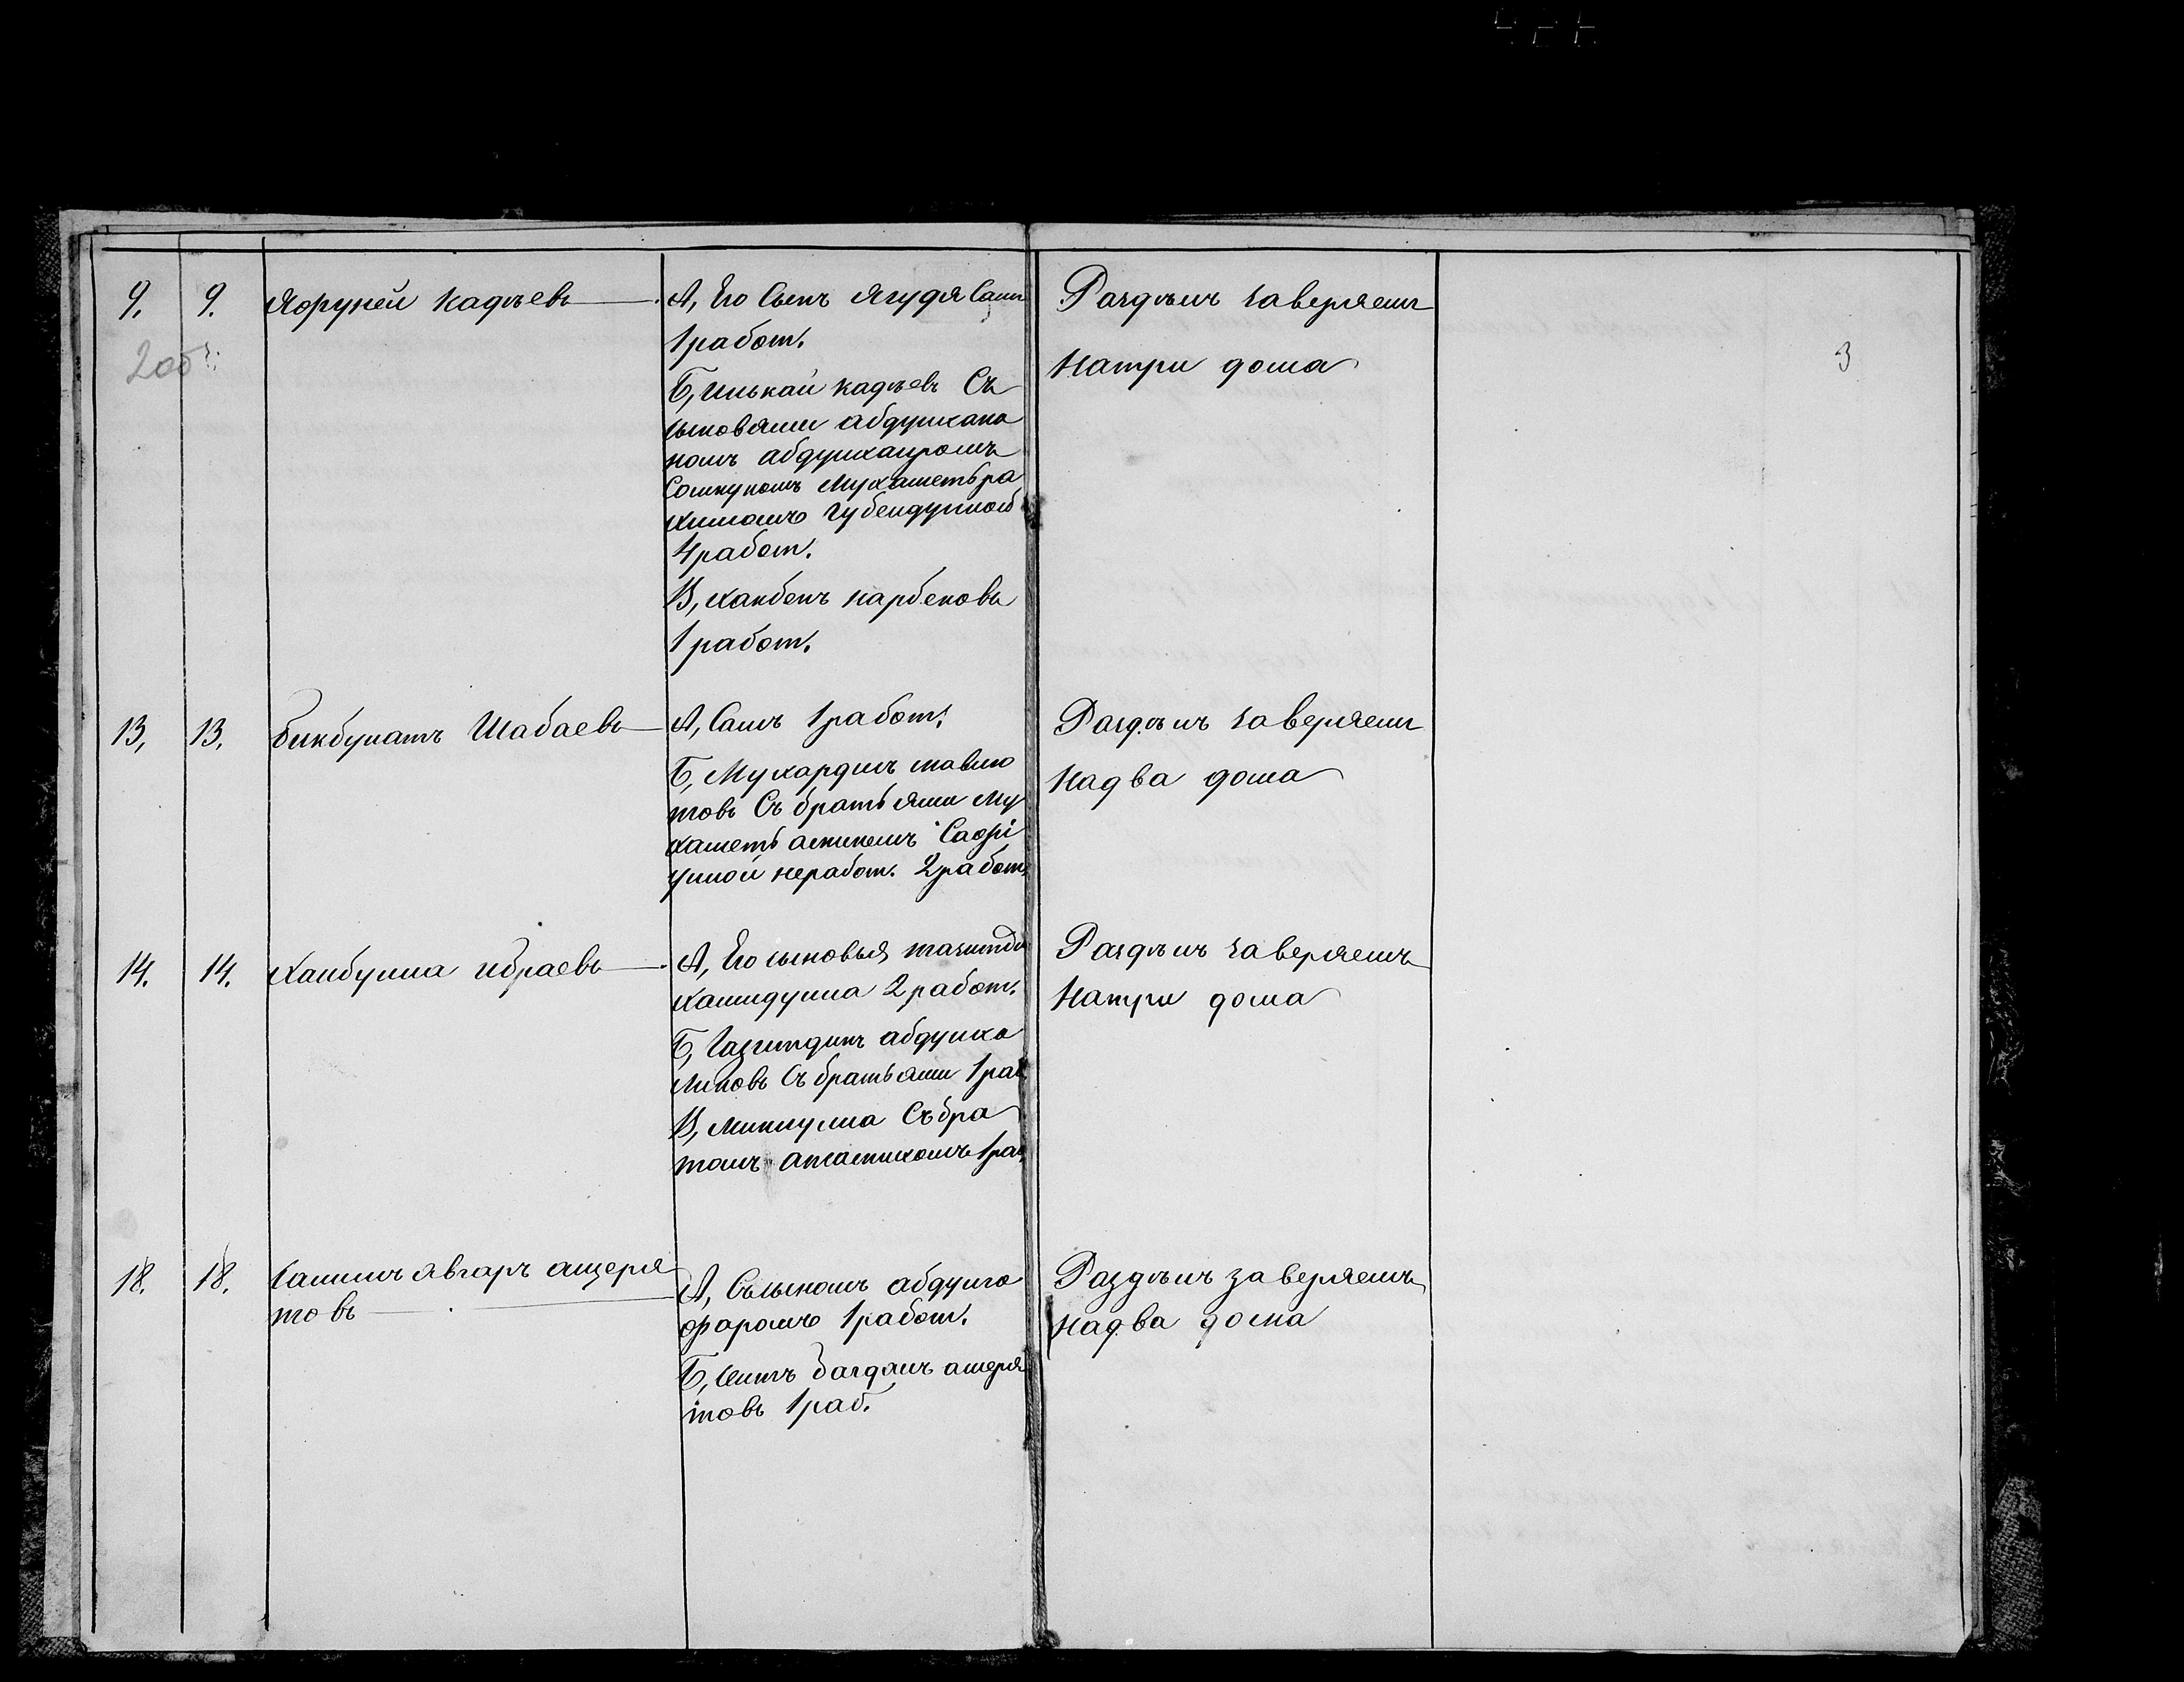 9. 9. Яфруней Кадѣевъ А, Его Сынъ Ягудя Самъ
1 работ.
Б, Илькай Кадѣевъ Съ
сыновями Абдулхана
номъ Абдулхаиромъ
Мухаметьра
химомъ Губейдуллой
4 работ.
В, Ханбекъ Карбековъ
1 работ.
Раздѣлъ заверяемъ
На три дома
3
13, 13. Бикбулатъ Шабаевъ А, Самъ 1 работ.
Б, Мухардимъ
товъ Съ братьями Му
хаметь Сафи
уллой неработ. 2 работ.
Раздѣлъ заверяемъ
На два дома
14. 14. Хайбулла Ибраевъ А, Его сыновья
Хамидулла 2 работ.
Б, Газитдинъ Абдулха
ликовъ Съ братьями 1 раб.
В, Миннулла Съ бра
томъ 1 раб.
Раздѣлъ заверяемъ
На три дома
18. 18. Салимъ Явгаръ Ащеря
товъ
А, Съ сыномъ Абдулга
фаромъ 1 работ.
Б, Сеитъ Багдалъ Ащеря
товъ 1 раб.
Раздѣлъ заверяемъ
на два дома